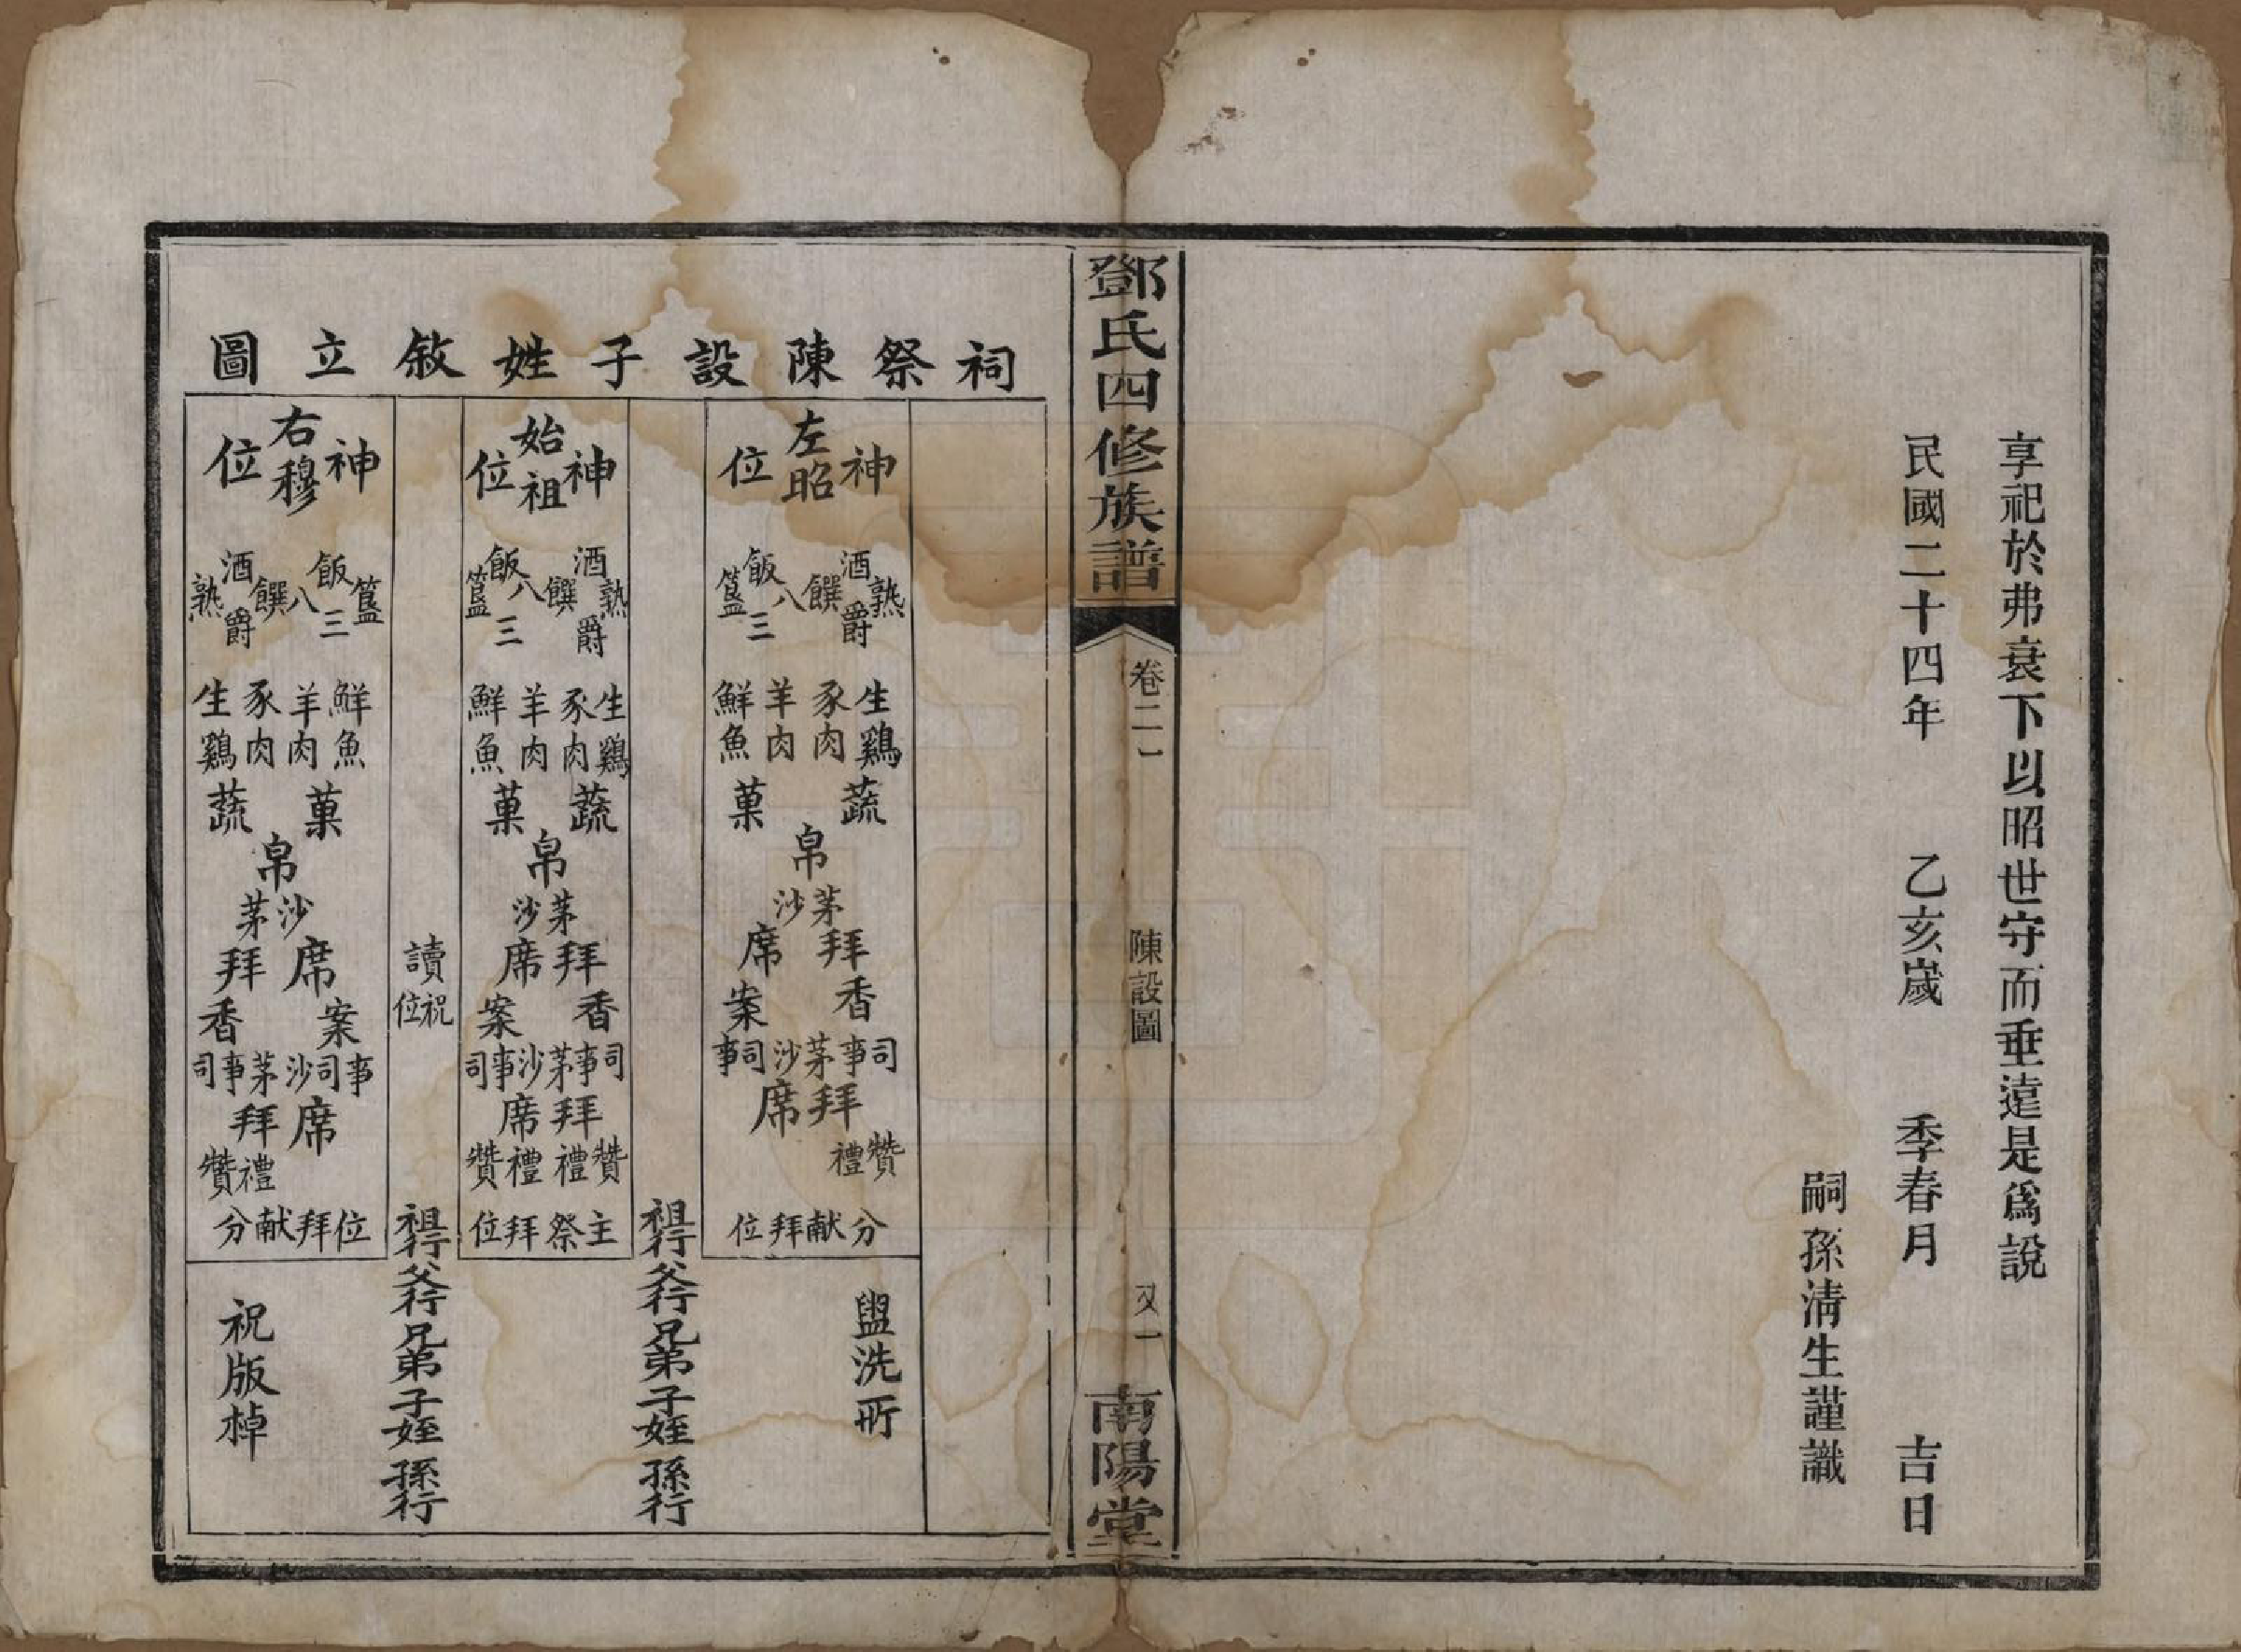 享祀於弗衰下以昭世守而垂遠是爲說
民國二十四年 乙亥歲 季春月 吉日
嗣孫淸生謹識
鄧氏四修族譜
卷二一
陳設圖
又一
南陽堂
祠祭陳設子姓敘立圖
左昭神位
熟酒爵饌八飯三簋
生鷄 豕肉 羊肉 鮮魚
蔬 菓
帛
茅沙
拜席
香案
司事茅沙司事
拜席
贊禮
分献拜位
始祖神位
熟酒爵饌八飯三簋
生鷄 豕肉 羊肉 鮮魚
蔬 菓
帛
茅沙
拜席
香案
司事茅沙事司
拜席
贊禮 禮贊
主祭拜位
讀祝位
右穆神位
簋飯三八饌酒爵熟
鮮魚 羊肉 豕肉 生鷄
菓 蔬
帛
沙茅
席拜
案香
事司沙茅事司
席拜
禮贊
位拜献分
盥洗所
祖行 父行 兄弟 子姪 孫行
祖行 父行 兄弟 子姪 孫行
祝版棹